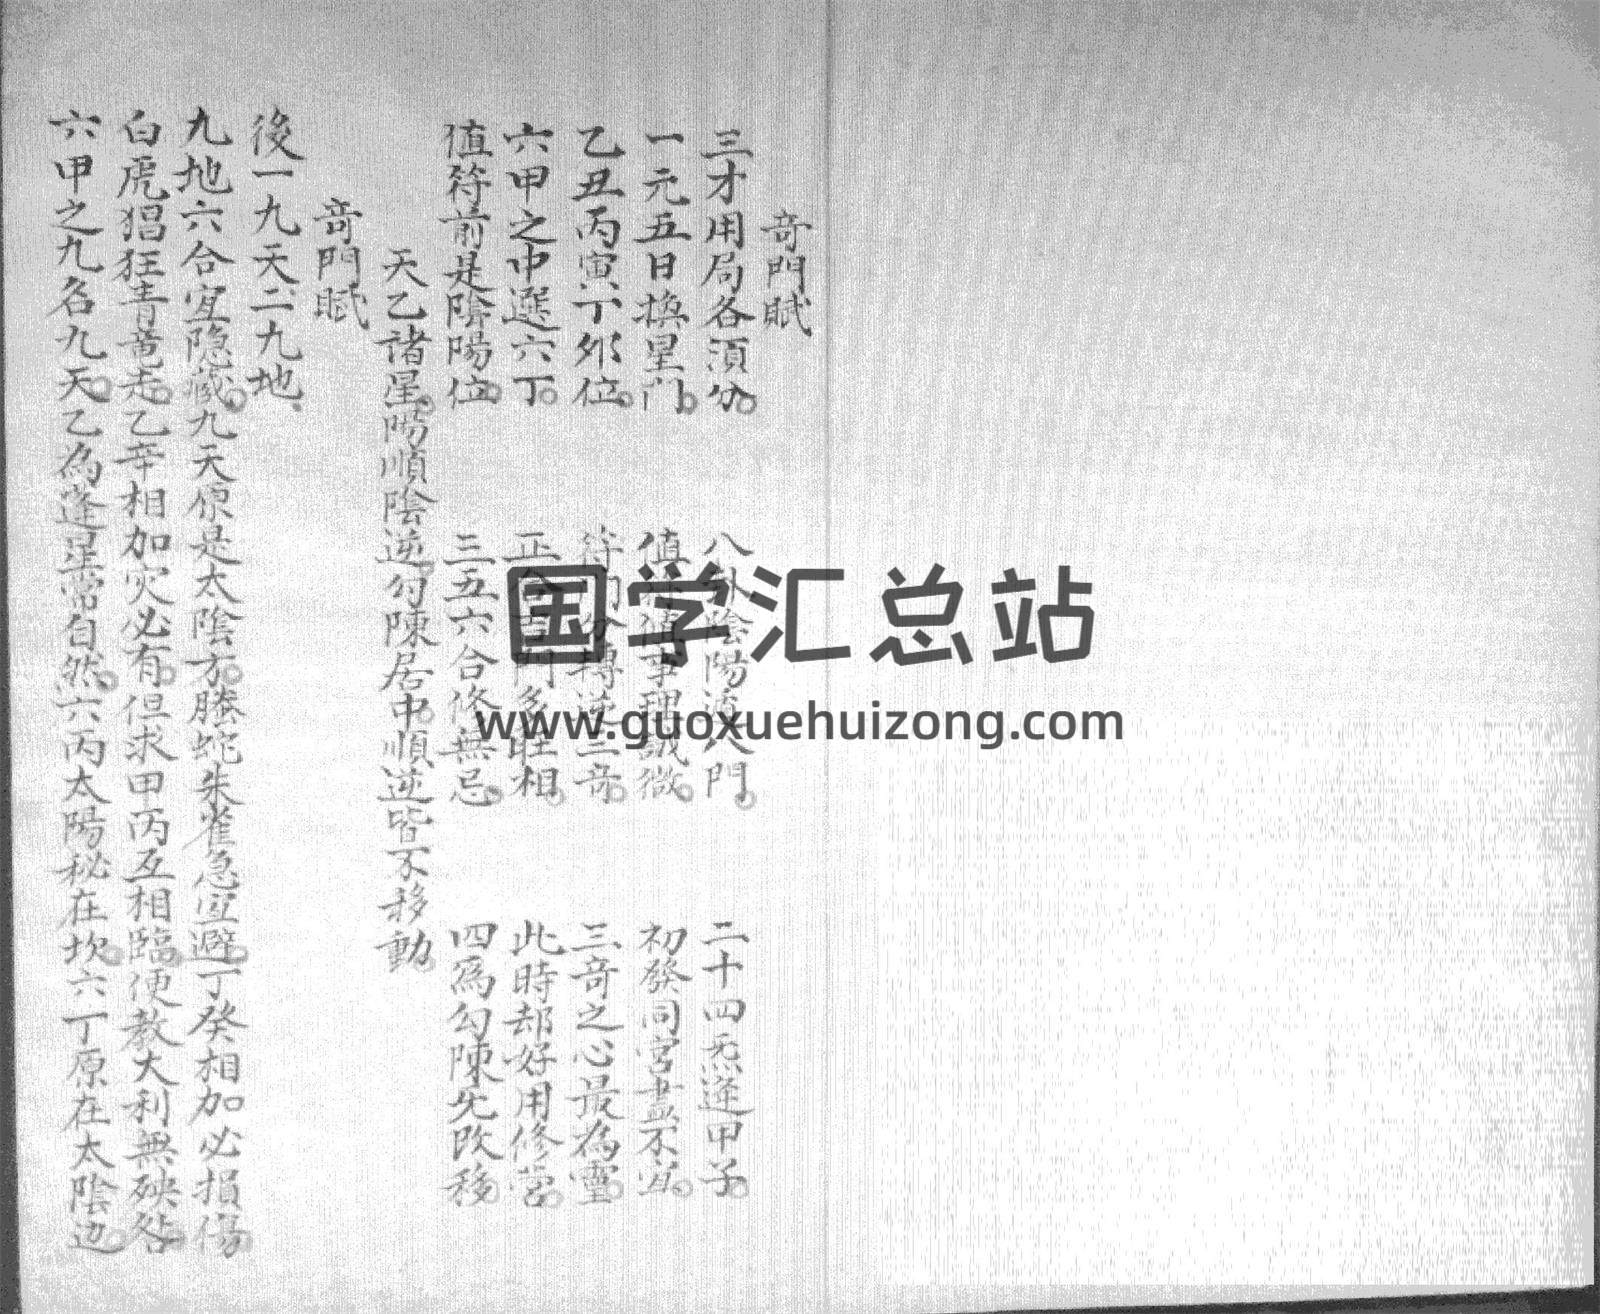 奇門賦
三才用局各須分 八卦陰陽 門 二十四炁逢甲子
一元五日換星門 值 值事理 微 初發同宮盡不宜
乙丑丙寅丁卯位 符 轉逆三奇 三奇之心最為靈
六甲之中選六丁 正合 門多旺相 此時却好用修营
值符前是陰陽位 三五六合修無忌 四爲勾陳先改移
天乙諸星陽順陰逆勾陳居中順逆皆不移動
奇門賦
後一九天二九地
九地六合宜隐藏九天原是太陰方螣蛇朱雀急宜避丁癸相加必損傷
白虎猖狂青竜走乙辛相加灾必有但求甲丙互相臨便教大利無殃咎
六甲之九名九天乙為逢星常自然六丙太陽秘在坎六丁原在太陰边
国学汇总站
www.guoxuehuizong.com